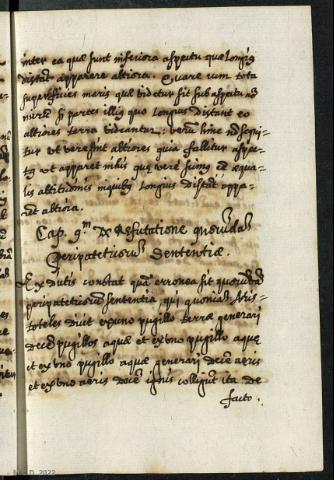 inter ea quæ sunt inferiora aspectu quæ longius
distant apparere altiora. Quare cum tota
superficies maris quæ videtur sit sub aspectu
partes illius quo longius distant eo
altiores terra videantur: verum hinc
tur ut vere sint altiores quia fallitur aspec-
tus ut apparet in his quæ vere sunt æqua-
lis altitudinis in quibus longius distat appa-
ret altiora.
Cap. 9m De Refutatione quorūdā
Peripateticorū Sententiæ.
Ex dictis constat quā erronea sit quorūdā
peripateticorū sententia qui quoniā Aris-
toteles dixit ex uno pugillo terræ generari
decē pugillos aquæ et ex uno pugillo aquæ
it ex uno pugillo aquæ generari decē aeris
et ex uno aeris decē ignis colligūt ita de
facto.